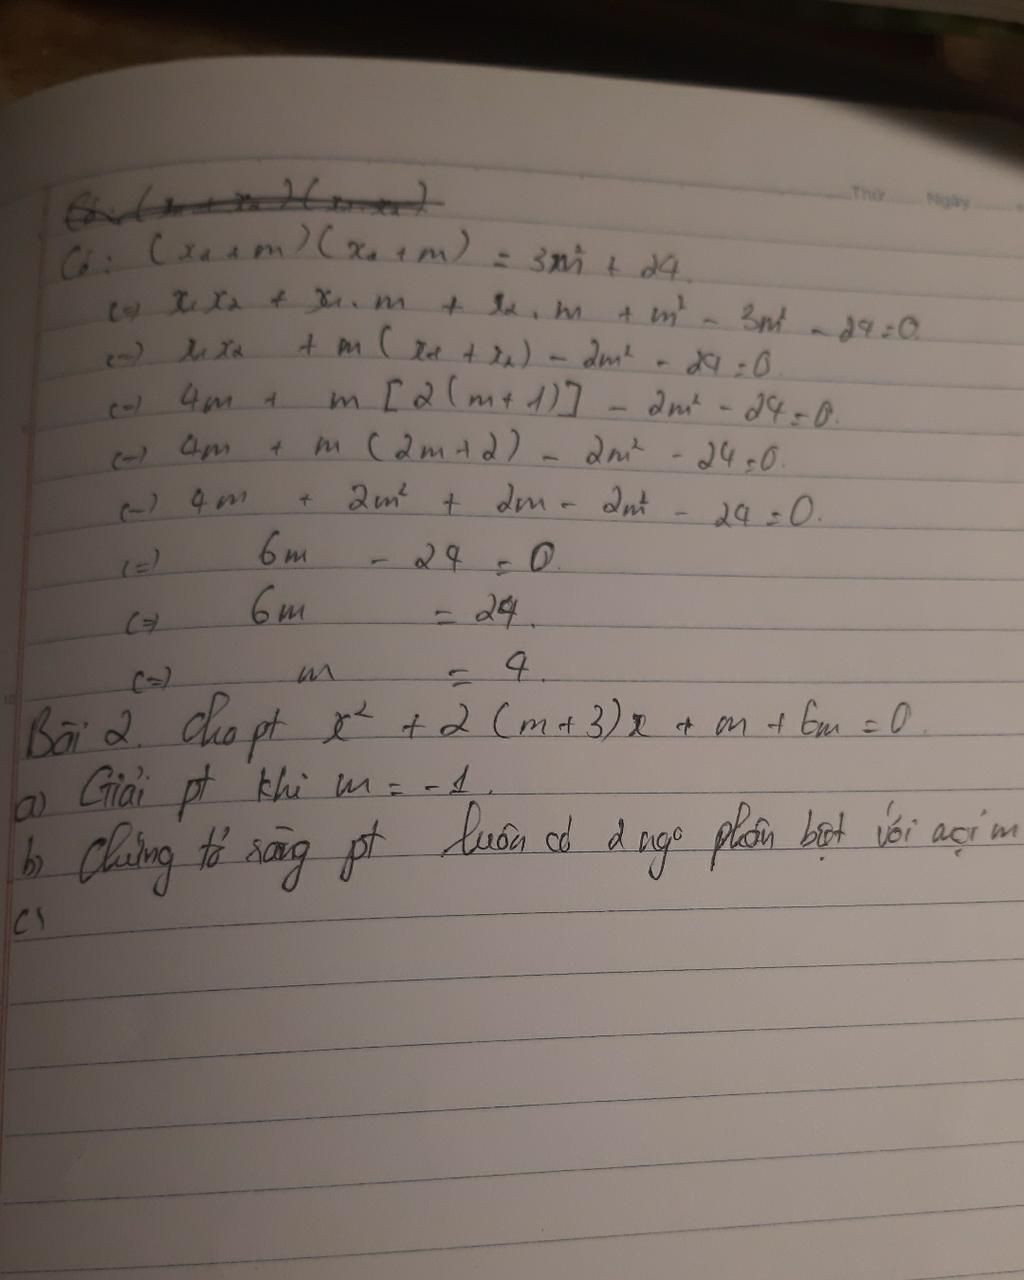 Thứ Ngày
Có: (x₁ + m)(x₂ + m) = 3m² + 24.
(=) x₁x₂ + x₁.m + x₂.m + m² - 3m² - 24=0
(=) x₁x₂ + m(x₁ + x₂) - 2m² - 24=0
(=) 4m + m[2(m+1)] - 2m² - 24=0.
(=) 4m + m(2m+2) - 2m² - 24=0.
(=) 4m + 2m² + 2m - 2m² - 24=0.
(=) 6m - 24 = 0
(=) 6m = 24.
(=) m = 4.
Bài 2. Cho pt x² + 2(m+3)x + m + 6m = 0.
a) Giải pt khi m = -1.
b) Chứng tỏ rằng pt luôn có 2 ngo phân biệt với mọi m
c)